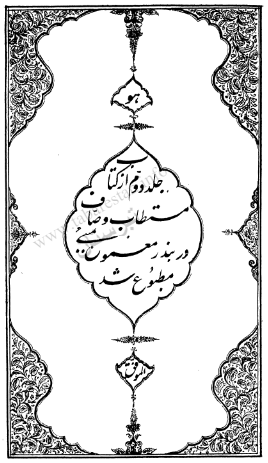 هو
جلد دوم از کتاب
مستطاب وصاف
در بندر معموره بمبئی
مطبوع شد